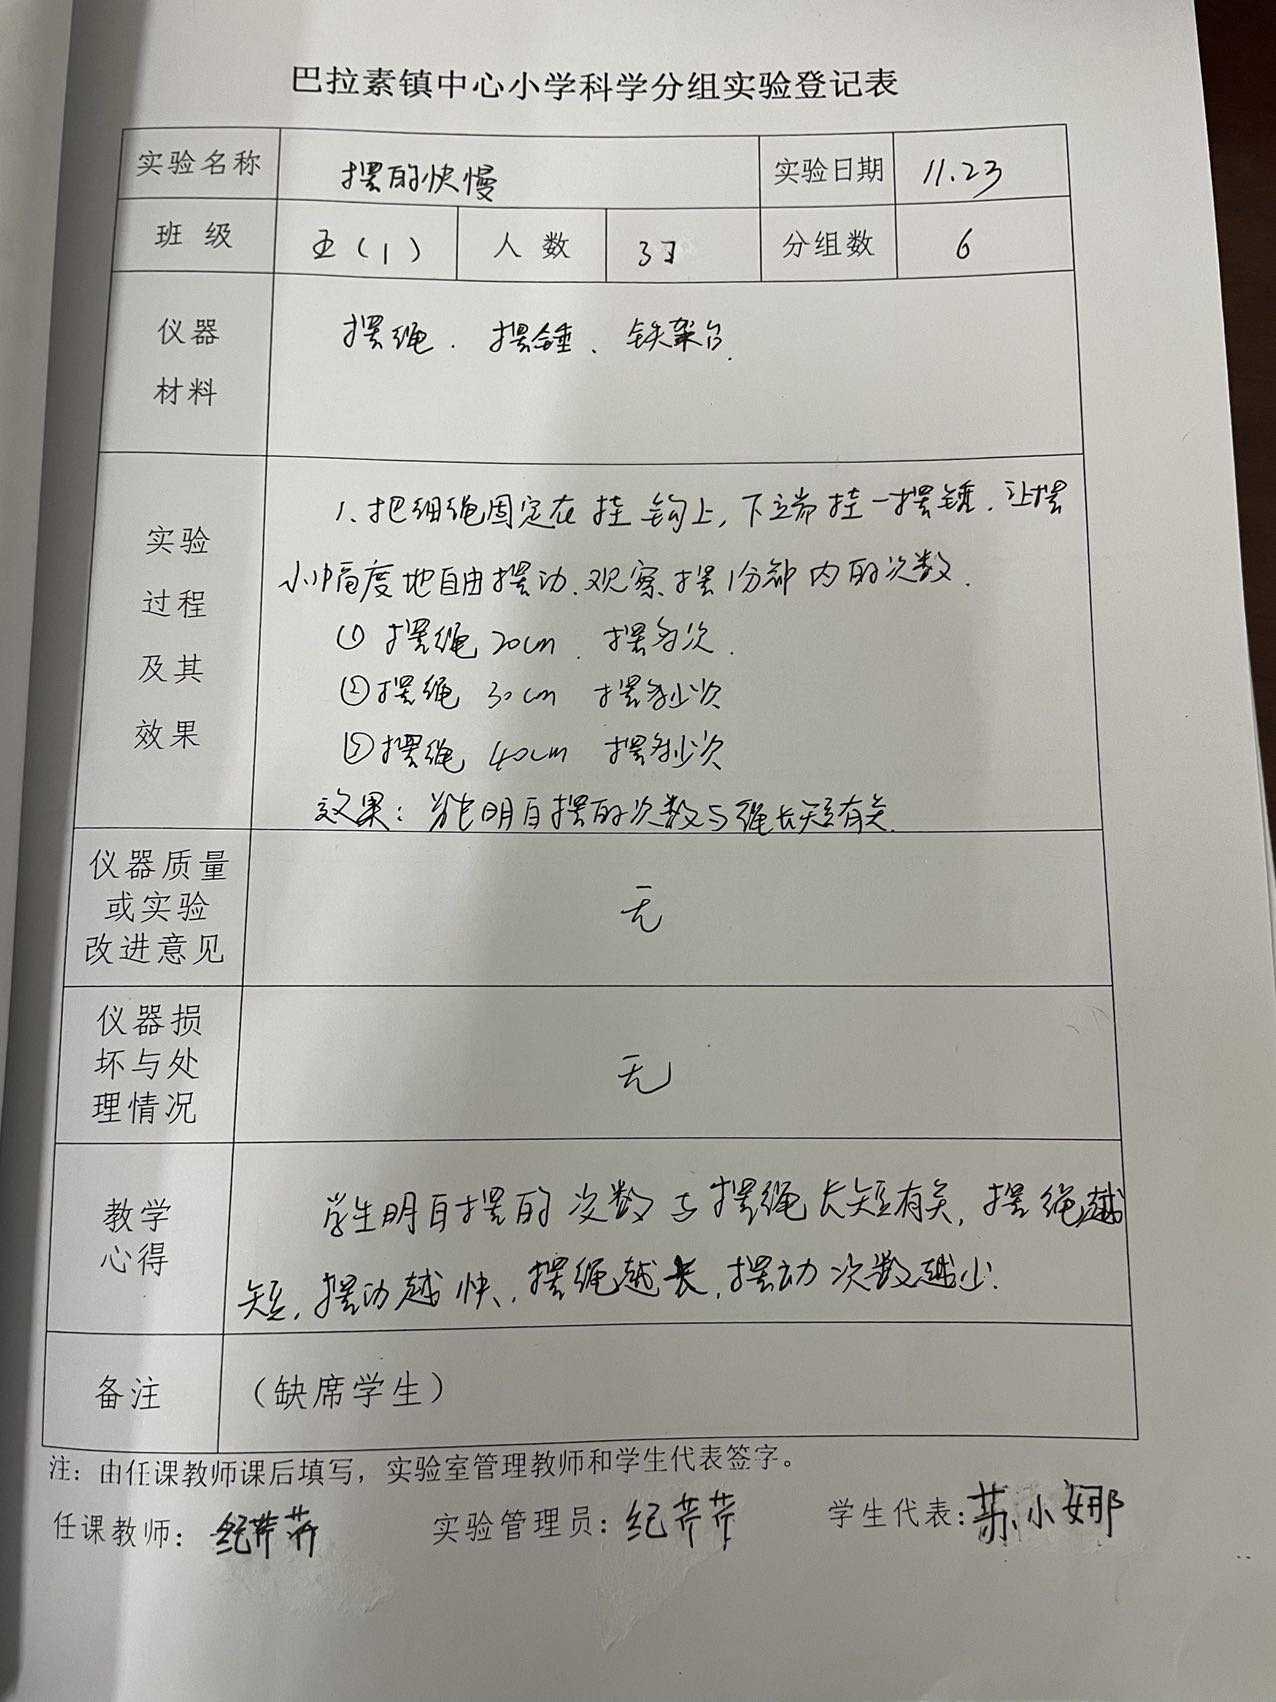 巴拉素镇中心小学科学分组实验登记表
实验名称 摆的快慢 实验日期 11.23
班级 五(1) 人数 分组数 6
仪器
材料
摆绳. 摆锤、铁架台.
实验
过程
及其
效果
1、把细绳固定在挂钩上,下端挂一摆锤.让摆
小幅度地自由摆动.观察摆1分钟内的次数.
① 摆绳 20cm . 摆 次.
②摆绳 30cm 摆多少次
③摆绳 40cm 摆多少次
效果: 明白摆的次数与绳长短有关.
仪器质量
或实验
改进意见
无
仪器损
坏与处
理情况
无
教学
心得
学生明白摆的次数与摆绳长短有关,摆绳越
短,摆动越快,摆绳越长,摆动次数越少.
备注 (缺席学生)
注:由任课教师课后填写,实验室管理教师和学生代表签字。
任课教师: 纪芹芹 实验管理员: 纪芹芹 学生代表: 苏小娜